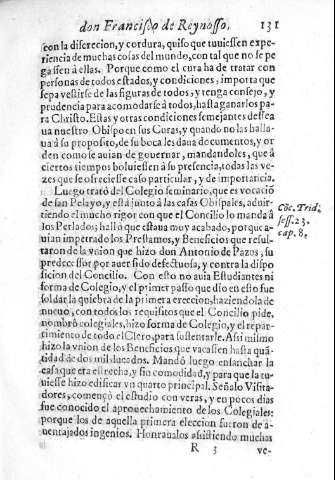 don Francisco de Reynosso. 131
con la discrecion, y cordura, quiso que tuuiessen expe-
riencia de muchas cosas del mundo, con tal que no se pe
gassen à ellas. Porque como el cura ha de tratar con
personas de todos estados, y condiciones, importa que
sepa vestirse de las figuras de todos, y tenga consejo, y
prudencia para acomodarse à todos, hasta ganarlos pa-
ra Christo. Estas y otras condiciones semejantes dessea
ua nuestro Obispo en sus Curas, y quando no las halla-
ua à su proposito, de su boca les daua documentos, y or
den como se auian de gouernar, mandandoles, que à
ciertos tiempos boluiessen à su presencia, todas las ve-
zes que se ofreciesse caso particular, y de importancia.
Luego tratò del Colegio seminario, que es vocació
de san Pelayo, y està junto à las casas Obispales, aduir-
tiendo el mucho rigor con que el Concilio lo manda à
los Perlados, hallò que estaua muy acabado, porque a-
uian impetrado los Prestamos, y Beneficios que resul-
taron de la vnion que hizo don Antonio de Pazos, su
predecessor por auer sido defectuosa, y contra la dispo
sicion del Concilio. Con esto no auia Estudiantes ni
forma de Colegio, y el primer passo que dio en esto fue
soldar la quiebra de la primera ereccion, haziendola de
nueuo, con todos los requisitos que el Concilio pide,
nombrò colegiales, hizo forma de Colegio, y el repar-
timiento de todo el Clero, para sustentarle. Assi mismo
hizo la vnion de los Beneficios que vacassen hasta quã-
tidad de dos mil ducados. Mandò luego ensanchar la
casa que era estrecha, y sin comodidad, y para que la tu-
uiesse hizo edificar vn quarto principal. Señalo Visita-
dores, començò el estudio con veras, y en pocos dias
fue conocido el aprouechamiento de los Colegiales:
porque los de aquella primera eleccion fueron de a-
uentajados ingenios. Honraualos assistiendo muchas
R 3 ve-
Cõc. Trid.
sess. 23.
cap. 8.